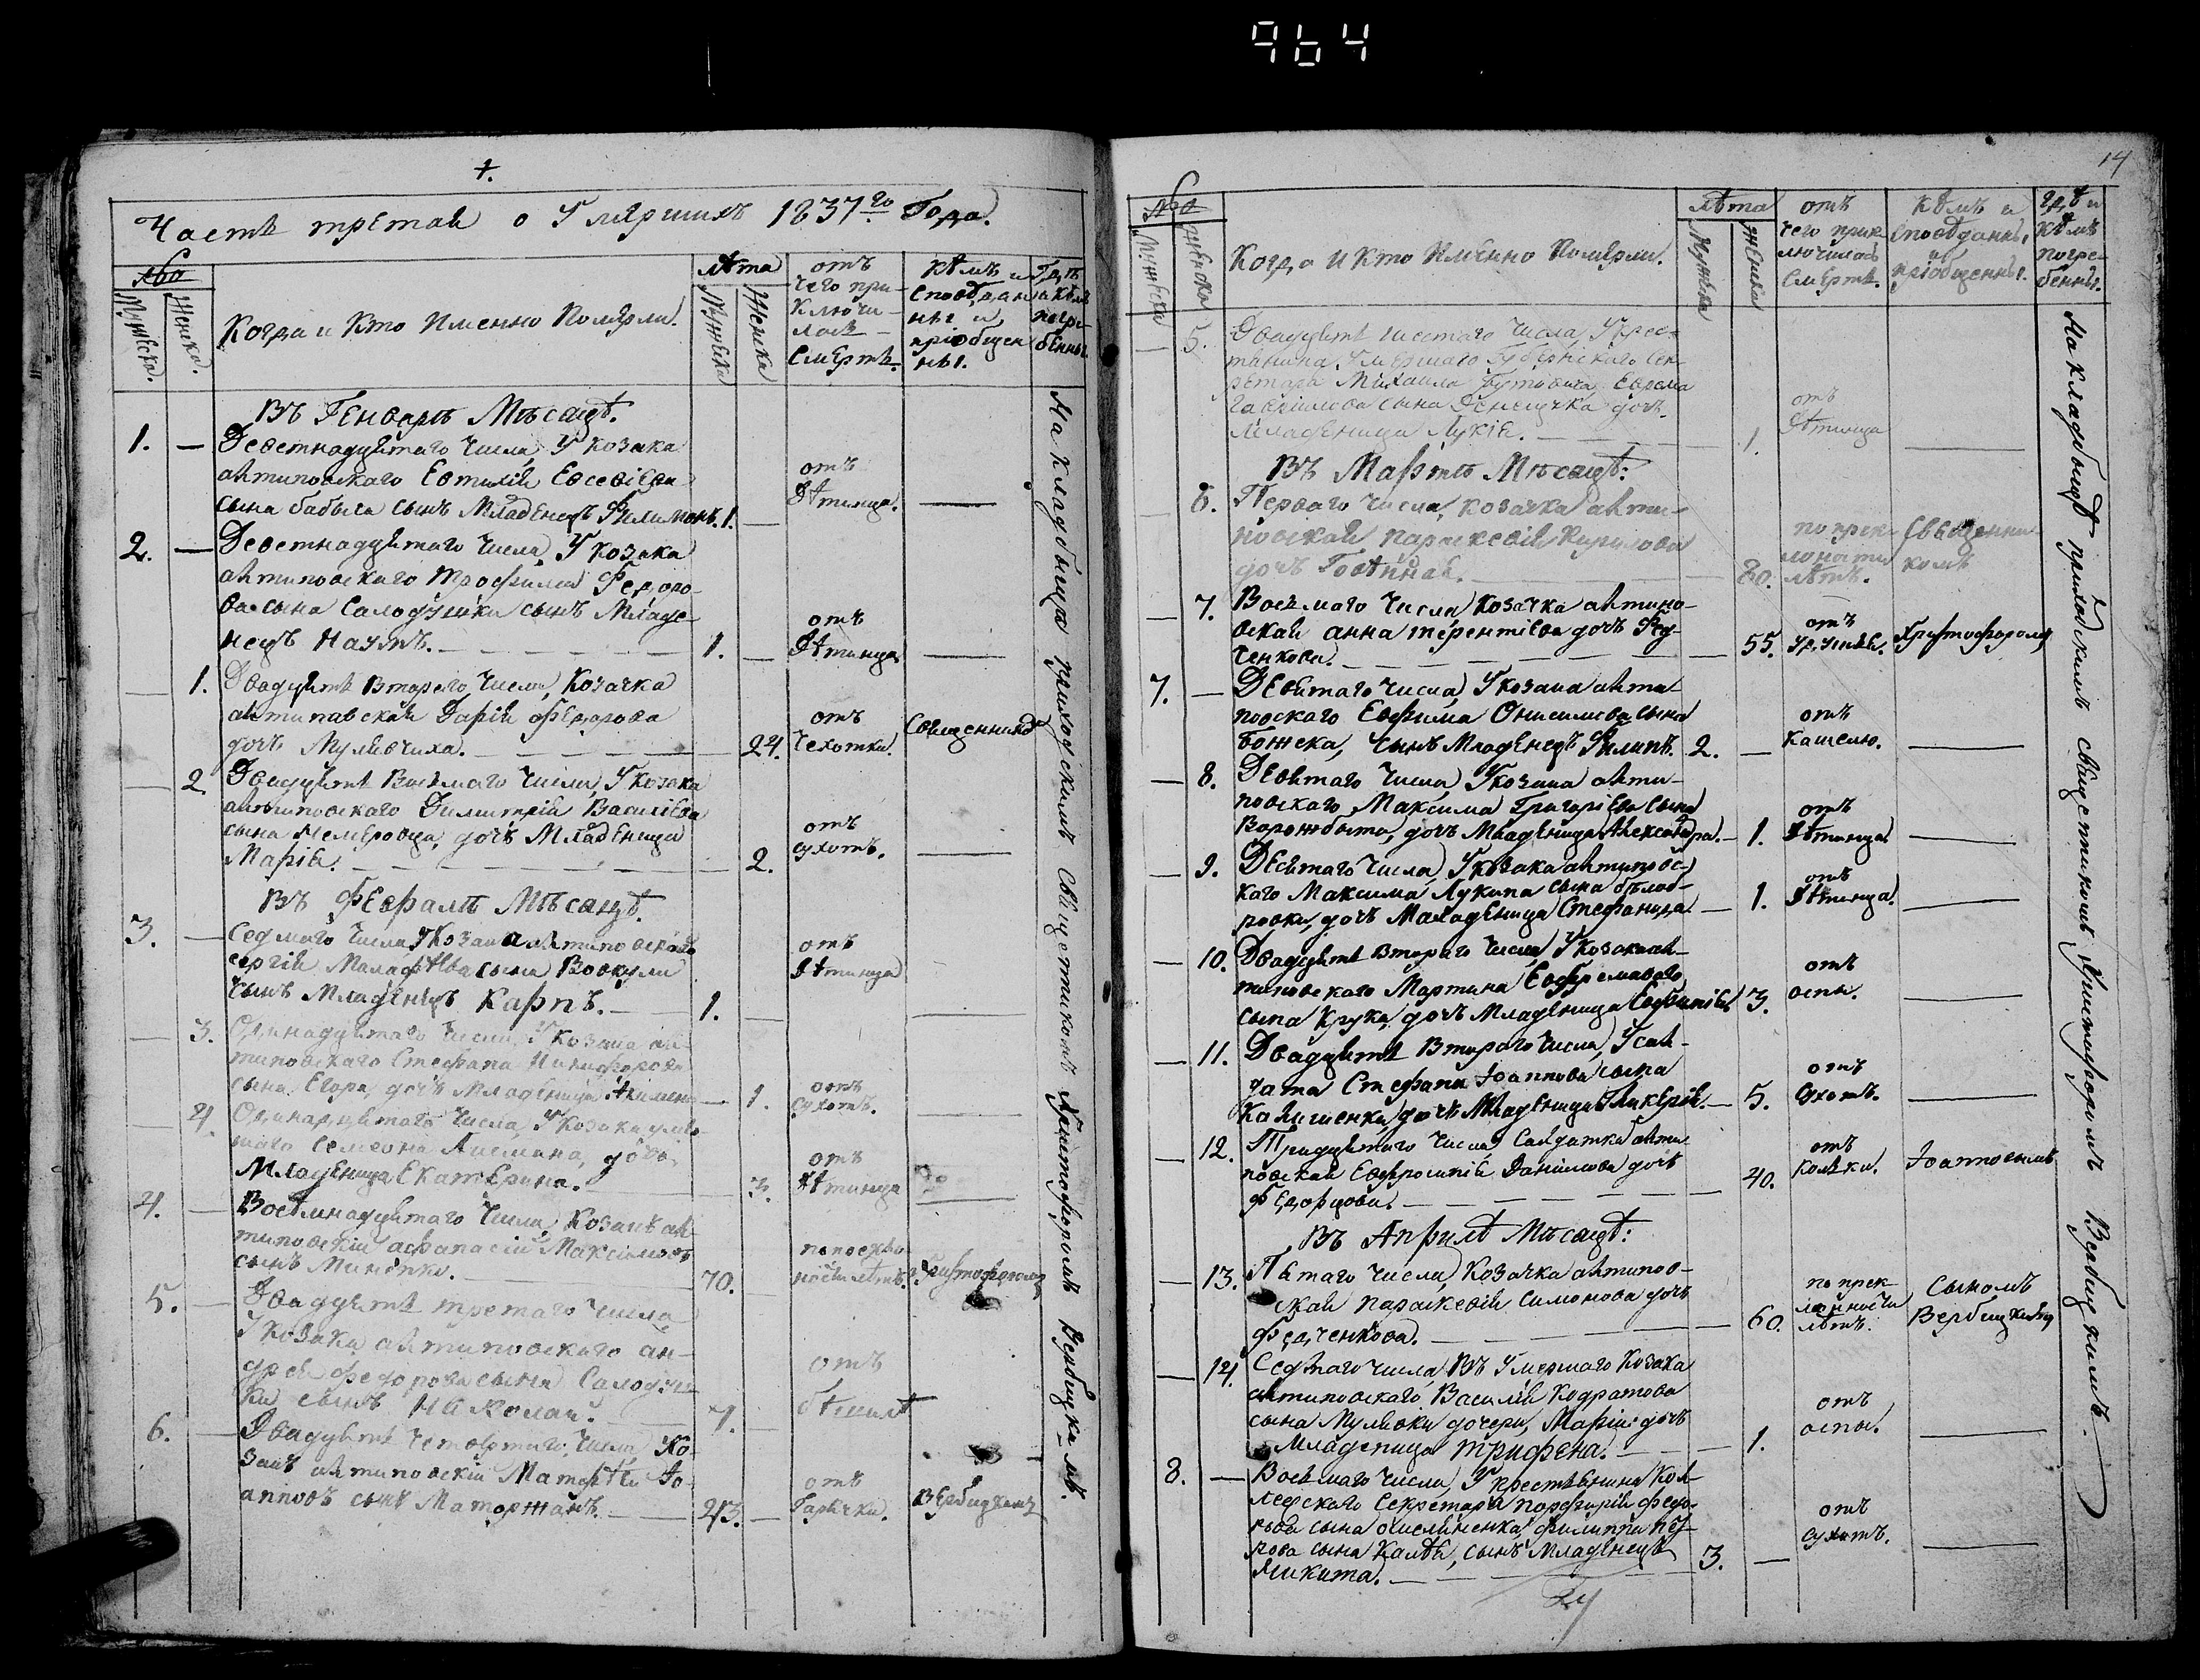 964
+.
Часть третая о Умяршихъ 1837го Года.
№о
Мужеска.
Женска.
Когда и Кто Именно Помярли.
лѣта
Мужеска
Женска
отъ
чего при-
ключи-
лась
Смерть.
Кѣмъ и
Споведан-
ны и
пріобщен
ны.
Гдѣ
и кѣмъ
погре-
бенны.
Въ Генварѣ Мѣсяцѣ.
1. — Деветнадцятаго Числа, У Козака
антиповскаго Евтихія Евсевіева
сына бабыча сынъ Младенецъ Филимонъ. 1. —
отъ
дѣтинца.
2. — Деветнадцятаго Числа, У Козака
антиповскаго Трофима Федоро-
ва сына Солодушки сынъ Младе-
нецъ Наумъ. 1. —
отъ
дѣтинца
— 1. Двадцять Второго Числа, Козачка
антиповская Дарія Федорова
дочь Мулявчиха. 24.
отъ
чехотки.
Священникомъ
— 2. Двадцять Восьмаго Числа, У Козака
антиповскаго Димитрія Василіева
сына Немеровца, дочь Младеница
Марія. 2.
отъ
сухотъ.
Въ Февралѣ Мѣсяцѣ.
3. — Седмаго Числа, У Козака антиповскаго
сергія Малафѣева сына Вовкули
сынъ Младенецъ Карпъ. 1. —
отъ
дѣтинца
— 3. Одинадцятаго Числа, У Козака ан-
типовскаго Стефана Никифорова
сына Егора, дочь Младеница Акилина 1.
отъ
сухотъ.
— 4. Одинадцятаго Числа, У Козака умер-
шаго Семеона дочь
Младеница Екатерина. 3.
отъ
дѣтинца
4. — Восѣмнадцятаго Числа, Козакъ ан-
типовскій афанасій Максимовъ
сынъ Миненко. 70. —
Христофоромъ
5. — Двадцять третаго Числа
У Козака антиповскаго ан-
дрея Федорова сына Солодуш-
ки сынъ Николай.
отъ
6. — Двадцять Четвертаго Числа, Ко-
закъ антиповскій Матфѣй Іо-
анновъ сынъ Маторжанъ. 43. —
отъ
Гарячки.
Вербицкимъ
На кладбыще приходскимъ Священникомъ Христофоромъ Вербицкимъ.
14
№о
Мужеска
Женска
Когда и Кто Именно Помярли.
лѣта
Мужеска
Женска
отъ
чего прик
лючилась
Смерть.
Кѣмъ и
споведанны,
и
пріобщенны.
Гдѣ и
Кѣмъ
погре-
бенны.
— 5. Двадцять шестаго Числа, У Крес-
тянина Умершаго Губернскаго Сек-
ретаря Михаила Бутовича Ефрема
Гавріилова сына дочь
Младеница Лукія. 1.
отъ
дѣтинца
Въ Мартѣ Мѣсяцѣ:
— 6. Перваго Числа, козачка анти-
повская параскевія Кирилова
дочь 80.
по прек-
лоности
лѣтъ.
Священни
комъ
— 7. Восьмаго Числа, Козачка антипо-
вская анна терентіева дочь Фед-
ченкова. 55.
отъ
Христофоромъ
7. — Девятаго Числа, У козака анти-
повскаго Евфима Онисимова сына
Божека, сынъ Младенецъ Филипъ. 2. —
отъ
кашелю.
— 8. Девятаго Числа, У козака анти-
повскаго Максима Григоріева сына
Ворожбыта, дочь Младеница Александра. 1.
отъ
дѣтинца
— 9. Десятаго Числа, У козака антиповс-
каго Максима Лукина сына
дочь Младеница Стефанида 1.
отъ
дѣтинца.
— 10. Двадцять Второго Числа, У козака ан-
типовскаго Мартина Евфремового
сына Крука, дочь Младеница Евфимія 3.
отъ
оспы.
— 11. Двадцять Второго Числа, У сал-
дата Стефана Іоаннова сына
Калишенка, дочь Младеница Гликерія. 5.
отъ
сухотъ.
— 12. Тридцятаго Числа, Салдатка анти-
повская Евфросинія Даніилова дочь
Федорцова. 40.
отъ
колѣки.
Іоанновымъ
Въ Априлѣ Мѣсяцѣ:
— 13. Пятаго Числа, Козачка антипов-
ская параскевія Симонова дочь
Федченкова. 60.
по прек
лонности
лѣтъ.
Сыномъ
Вербицкимъ
— 14. Седмаго числа, Въ Умершаго Козака
антиповскаго Василія Кодратова
сына Мулявки дочери, Маріи: дочь
Младеница Трифена. 1.
отъ
оспы.
8. — Восьмаго Числа, У крестьянина Кол-
лежскаго Секретаря порфирія Федо-
рова сына филиппа пет-
рова сына сынъ Младенецъ
Никита. 3. —
отъ
сухотъ.
На кладбыщѣ приходскимъ Священникомъ Христофоромъ Вербицкимъ.